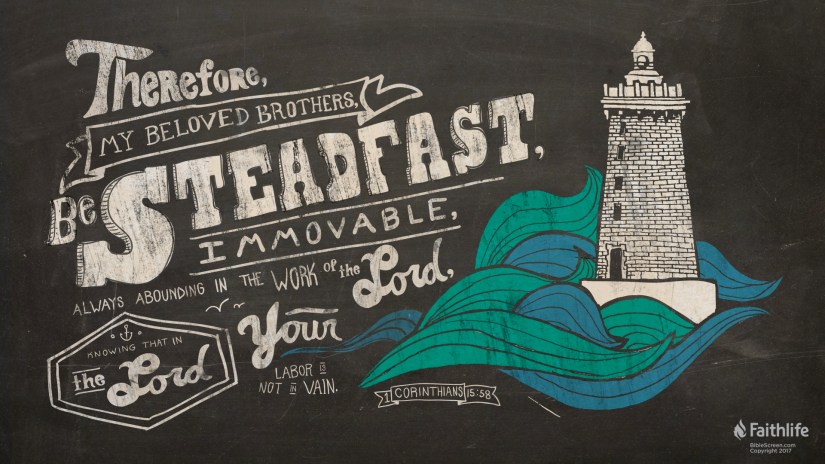 Therefore,
MY BELOVED BROTHERS,
Be STEADFAST,
IMMOVABLE,
ALWAYS ABOUNDING IN THE WORK of the Lord,
KNOWING THAT IN
the Lord
Your
LABOR IS
NOT IN VAIN.
1 CORINTHIANS 15:58
Faithlife
BibleScreen.com
Copyright 2017